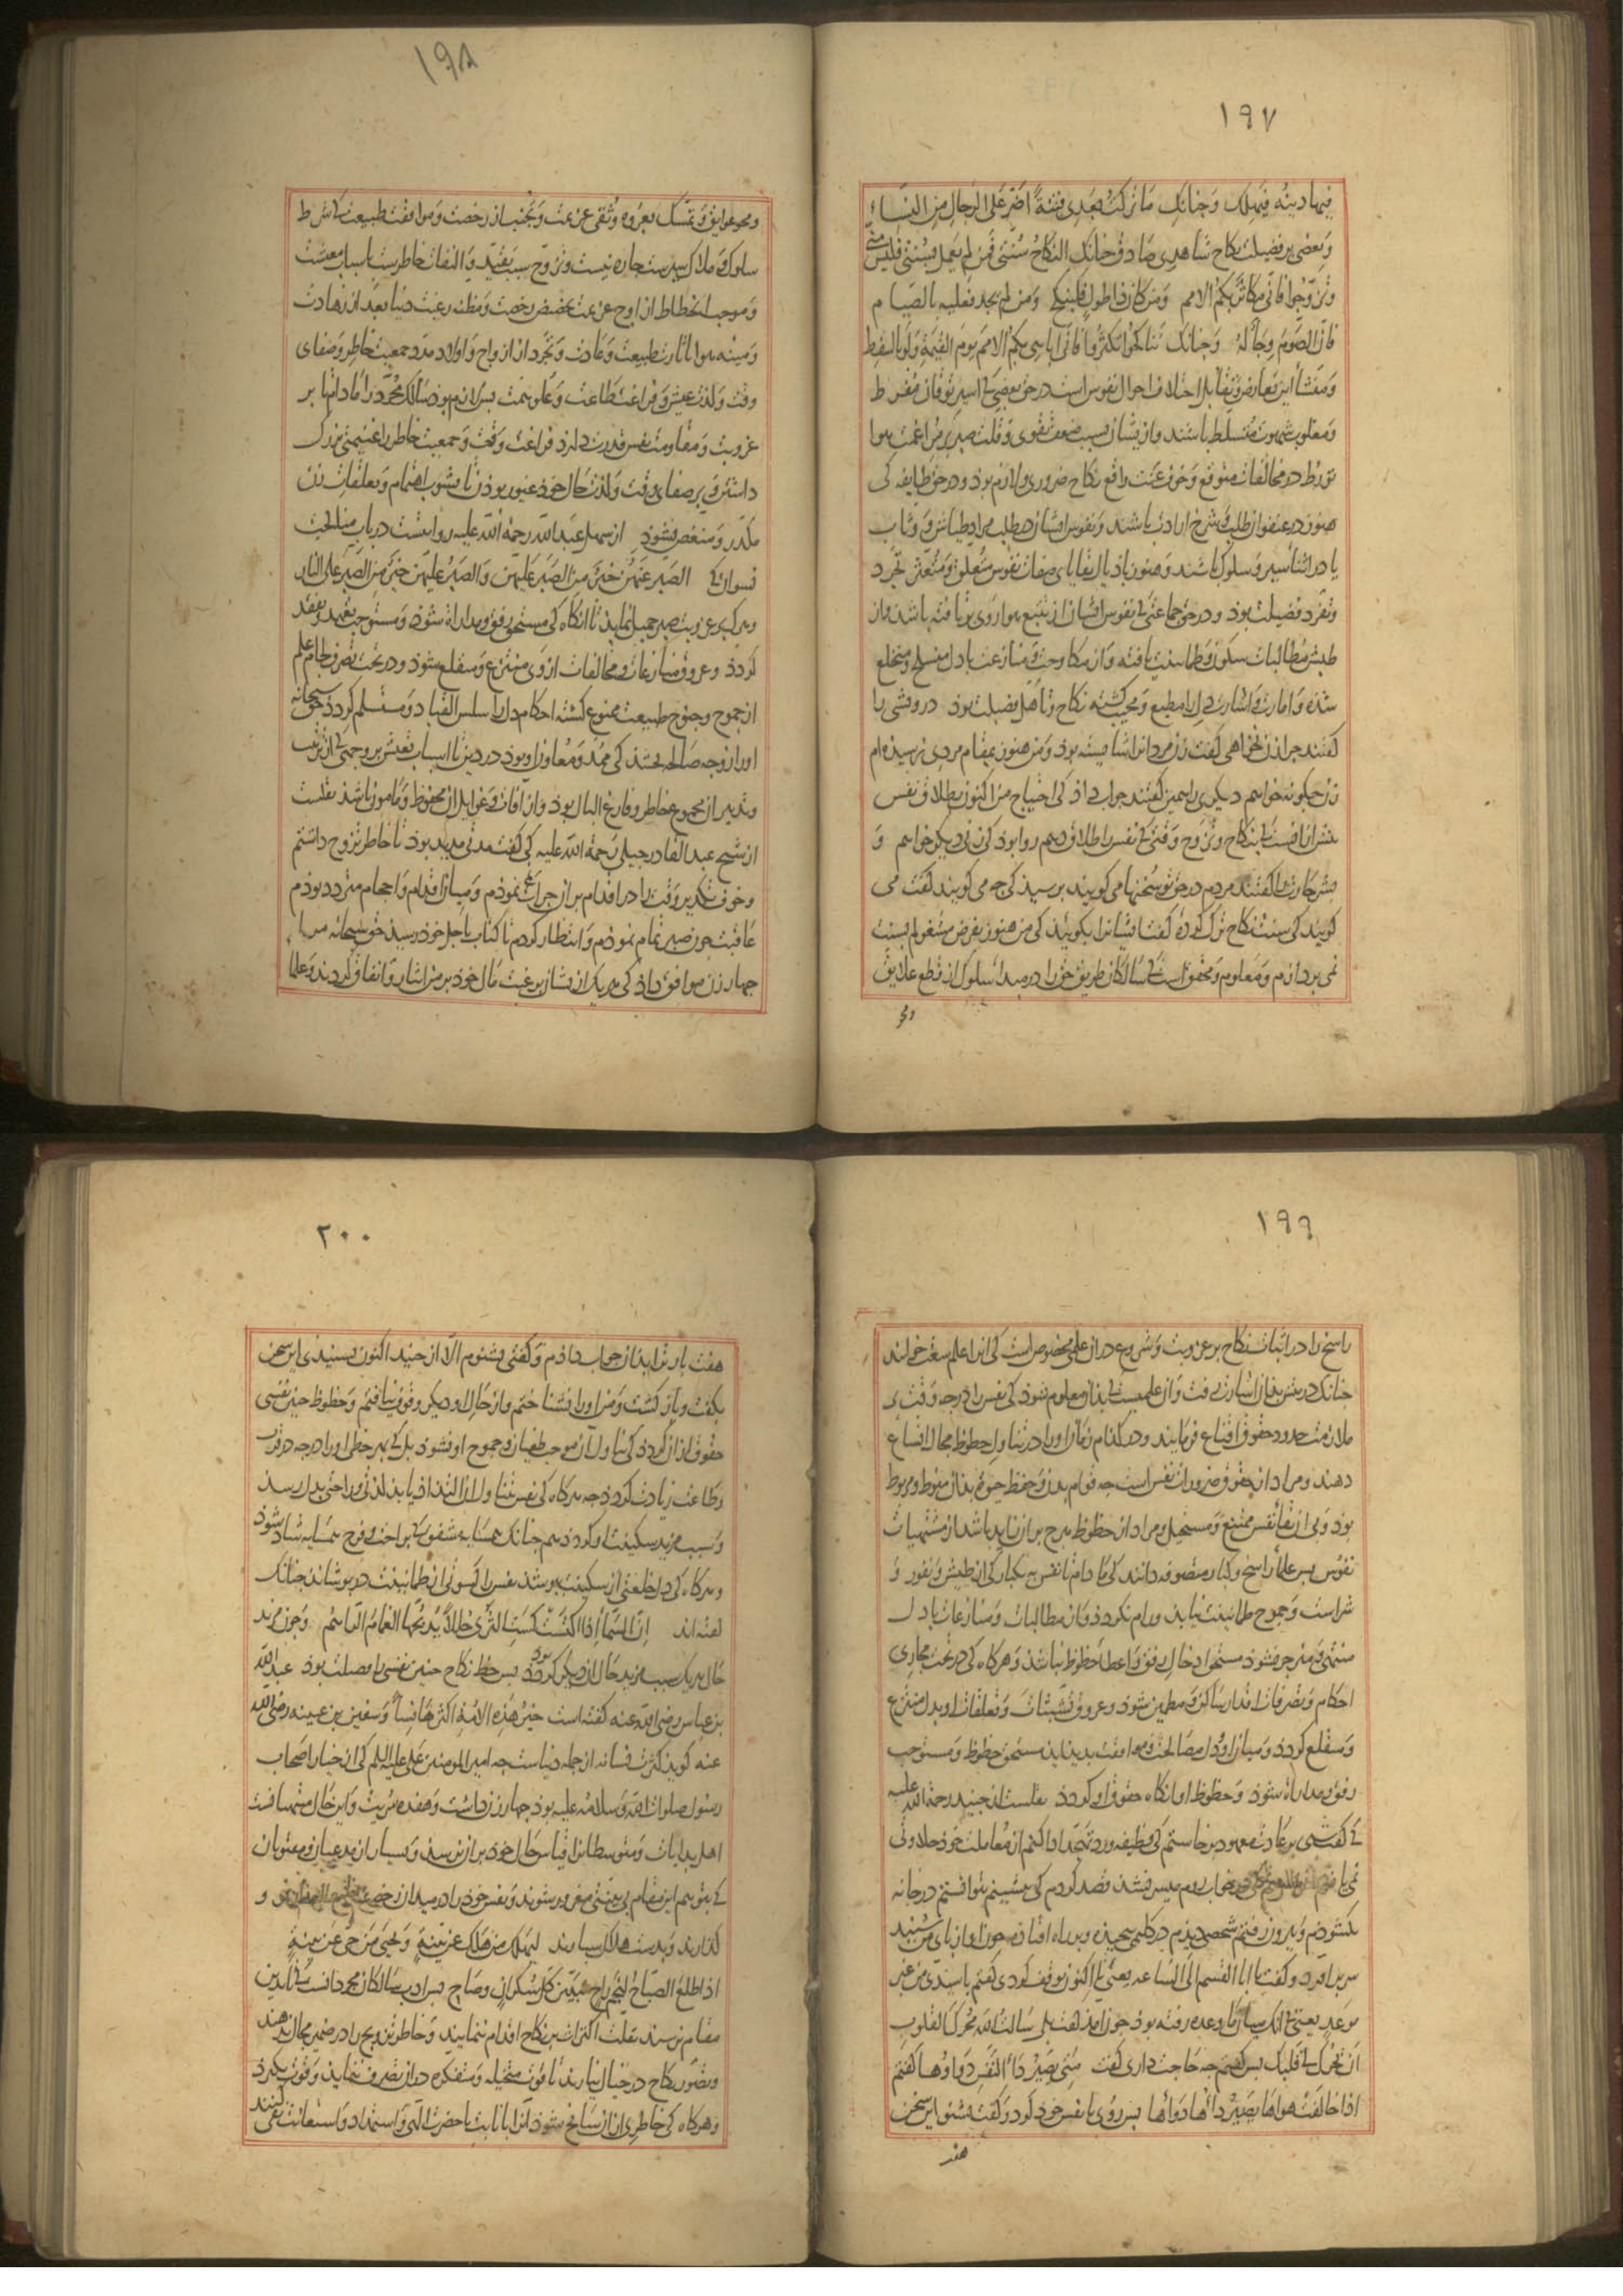 ۱۹۷
فیها دینه فیهلک وَچنانک مَا تَرکتُ بَعدی فتنةً اَضَرّ عَلی الرجالِ مِنَ النسَاءِ
وَبعضی بر فضیلت نکاح شاهدی صَادق چنانک النکاحُ سُنّتی فمَن لم یَعمل بسُنّتی فلیسَ منّی
وتزوّجوا فانّی مکاثرٌ بکم الامم وَمَن کان ذا طولٍ فلینکح وَمَن لم یجد فعلیه بالصّیام
فانّ الصَّومَ وِجَاءٌ لهُ وَچنانک تناکحوا تکثروا فانّی اُباهی بکم الامم یومَ القیٰمَةِ وَلَو بالسِقط
وَمنشأ این تعارض وَتقابل اختلاف احوال نفوس است در حق بعضی کی اسیر توقان مفرط
وَمغلوب شهوت متسلط باشند وازیشان بسبب ضعف تقوی وَقلت صبر بر مراغمت هوا
تورّط در مخالفات متوقع وَخوف عنت واقع نکاح ضروری ولازم بود ودر حق طایفه کی
هنوز در عنفوان طلب وشرخ ارادت باشند وَنفوس ایشان در طلب مراد طیاش وَوثاب
یا در اثناء سیر وَسلوک باشند وَهنوز باذیال بقایای صفات نفوس متعلق وَمتشبث تجرّد
وَتفرّد فضیلت بود ودر حق جماعتی کی نفوس ایشان از تتبع هوا روی برتافته باشد واز
طیش مُطالبات سکون وَطمانینت یافته وَاز مکاوحت وَمنازعت با دل منسلخ ومنخلع
شده وَامارت وَاشارت دل را مطیع وَمجیب کشته نکاح وَتاهل فضیلت بود درویشی را
گفتند چرا زن نخواهی گفت زن مردانرا شایسته بود وَمن هنوز بمقام مردی نرسیده‌ام
زن چگونه خواهم دیگری را همین گفتند جواب داذ کی احتیاج من اکنون بطلاق نفس
بیش از آنست کی بنکاح وتزوج وَقتی کی نفس را طلاق دهم روا بود کی زنی دیگر خواهم وَ
بشر حارث را گفتند مردم در حق تو سُخنها می کویند پرسید کی چه می کویند گفت می
کویند کی سنت نکاح ترک کرده گفت ایشانرا بکویید کی من هنوز بفرض مشغولم بسنت
نمی پردازم وَمَعلوم ومحقق است کی سَالکان طریق حق را در مبدأ سلوک از قطع علایق
ومحو
۱۹۸
ومحو عوایق وَتمسّک بعُروه وُثقی عزیمت وَتجنب از رخصت وَموافقت طبیعت کی شرط
سلوک وَملاک سیرست چاره نیست وتزوّج سبب تقیّد وَالتفات خاطرست باسباب معیشت
وَموجب انحطاط از اوج عزیمت بحضیض رخصت وَمظنه رغبت دنیا بعد از زهادت
وَمیثه هوا باثارت طبیعت وَعادت وَتجرّد از ازواج وَاولاد مدد جمعیت خاطر وَصفای
وقت وَلذت عیش وَفراغت طاعت وَعلوّ همت پس لازم بود سَالک مجرّد را مادام تا بر
عزوبت وَمقاومت نفس قدرت دارد فراغت وَقت وَجمعیت خاطر را غنیمتی بزرگ
داشتن وَبر صفای وقت وَلذت حال خود غیور بودن تا بشوب اهتمام وَتعلقات زن
مکدّر وَمنغص نشود از سهل عبد الله رحمة الله علیه روایتست در باب مصلحت
نسوان کی الصَبر عَنهُنَّ خیرٌ منَ الصَبر عَلیهنّ وَالصَبرُ عَلیهنَّ خیرٌ مِنَ الصَبر عَلی النار
وهر کی بر عزوبت صبر جمیل نماید تا آنگاه کی مستحق رفق ومداراة شود وَمستوجب تعهد وتفقد
گردذ وعروق منازعات ومخالفات از وی منتزع وَمنقلع شود ودر تحت تصرف لجام علم
از جموح وجنوح طبیعت ممنوع کشته احکام دل را سلس القیاد وَمستسلم گردذ حق سبحانه
اورا زوجه صَالحه بخشد کی ممِد وَمُعاون او بود در دین تا اسباب تعیش بر وجهی کی از ترتیب
وتدبیر ان مجموع خاطر وفارغ البال بود واز آفات وَغوایل ان محفوظ وَمَامون باشد نقلست
از شیخ عبد القادر جیلی رحمة الله علیه کی گفت مدتی مدید بود تا خاطر تزوّج داشتم
وخوف تکدیر وَقت را در اقدام بر ان جراءت ننموذم وَمیان اقدام وَاحجام متردد بوذم
عَاقبت چون صبر تمام نموذم وَانتظار کردم تا کتاب باجل خود رسید حق سُبحانه مرا
چهار زن موافق داذ کی هر یک ازیشان برغبت مَال خود بر من ایثار وَانفاق کردند وَعلما
۱۹۹
راسخ را در اثبات نکاح بر عزوبت وَشروع در ان علمی مخصوص است کی انرا علم سعت خوانند
چنانک در پیش بذان اشارت رفت وَان علمیست کی بذان معلوم شود کی نفس را در چه وَقت بر
ملازمت حدود حقوق اقناع فرمایند ودر کذام زمان اورا در تناول حظوظ مجال اتساع
دهند ومراد از حقوق ضرورات نفس است چه قوام بدن وَحفظ حیوة بذان منوط ومربوط
بود وَبی ان بقاء نفس ممتنع وَمستحیل ومراد از حظوظ هرچ بران زاید باشد از مشتهیات
نفوس پس علماء راسخ وکبار متصوفه دانند کی مَا دام تا نفس به یکبارکی از طیش وَنفور وَ
شراست وَجموح طمانینت نیابد ورام نگردد وَاز مطالبات وَمنازعات با دل
منتهی وَمنزجر نشود مستحق ادخال رفق وَاعطاء حظوظ نباشد وَهر کاه کی در تحت مجاری
احکام وَتصرفات اقدار سَاکن وَمطمئن شود وعروق تشبثات وَتعلقات او بدل منتزع
وَمنقلع گردد وَمیان او ودل مصَالحت وَموافقت بدید آید مستحق حظوظ وَمستوجب
رفق ومداراة شود وَحظوظ او انگاه حقوق او گردد نقلست از جنید رحمة الله علیه
کی گفت شبی بر عَادت معهود برخاستم کی وظیفه ورد تهجّد ادا کنم از مُعاملت خود حلاوتی
نمی یافتم خواستم کی در خواب روم میسر نشد قصد کردم کی بنشینم نتوانستم در خانه
بگشوذم وَبیرون رفتم شخصی دیذم در گلیمی پیچیذه وبر راه افتاذه چون اواز پای من شنید
سر بر آورد وگفت یا ابا القسم الی السَاعه یعنی تا اکنون توقف کردی گفتم یا سیّدی مِن غیر
مَوعَدٍ یعنی نه انک میان ما وعده رفته بود چون امذم گفت بلی سَالتُ الله محرّک القلوب
اَن یُحَرّک الیّ قلبک پس گفتم چه حَاجت داری گفت مَتی یَصیرُ دَاءُ النَفسِ دَواؤُهَا گفتم
اذا خالَفَتْ هواها یَصیرُ دَاؤها دَواؤها پس روی با نفس خود کرد وَگفت بشنو این سخن
هفت
۲۰۰
هفت بار ترا بذان جواب داذم وَگفتی نشنوم الّا از جنید اکنون بشنیدی این سخن
بگفت وبازگشت وَمن اورا نشناختم واز حَال او دیگر وقوف نیافتم وَحظوظ چنین نفسی
حقوق از ان گردد کی تناول ان موجب طغیان وجموح او نشود بل کی بهر حظی اورا درجه در قرب
وطَاعت زیادت گردد چه هر کاه کی نفس بتناول ان التذاذ یابد لذتی وراحتی بدل رسد
وَسبب مزید سکینت او گردد همچنانک همسَایه مشفق کی براحت وفرح همسَایه شاد شود
وهر کاه کی دل خلعتی از سکینت بپوشد نفس را کسوتی از طمانینت در پوشاند چنانک
گفته‌اند اِنّ السَّماءَ اِذا اکتسَتْ کسَتِ الثَری حُللاً یُدبّجُها الغَمامُ الرّاهمُ وَچون مزید
حَال هر یک سبب مزید حَال ان دیگر گردد پس حظ نکاح چنین نفسی را فضیلت بود عبد الله
بن عباس رضی الله عنه گفته است خیرُ هٰذه الامّة اکثرُهَا نِساءً وَسفین بن عیینه رضی الله
عنه گوید کثرت نسا نه از جمله دنیاست چه امیر المومنین عَلی علیه السلم کی از خیار اصحاب
رسول صلوات الله وَسلامه علیه بود چهار زن داشت وَهفده سریت واین حَال منتهیانست
اهل بدایات وَمتوسطانرا قیاس حَال خود بر ان نرسد وَبسیار از مدعیان ومفتونان
کی بتوهم این مقام بی بیّنتی مغرور شوند وَنفس خود را در میدان رخصت خلیع العذار و
گذارند وَبدست هلاک سپارند لیهلکَ مَن هَلکَ عن بیّنةٍ وَیحیٰی مَن حیّ عَن بیّنةٍ
اذا طلعَ الصَباحُ لنجمِ راحٍ تبیّن کلّ سُکرانٍ وصَاحٍ پس ادب سَالکان مجرد انست کی تا بدین
مقام نرسند بقلت اکتراث بر نکاح اقدام ننمایند وَخاطر تزویج را در ضمیر مجال ندهند
وتصوّر نکاح در خیال نیارند تا قوت متخیله وَمتفکره در ان تصرف ننماید وَقوت نگیرد
وَهر کاه کی خاطری از ان سَانح شود آنرا بانابت با حضرت الٰهی وَاستمداد وَاستعانت نفی کنند